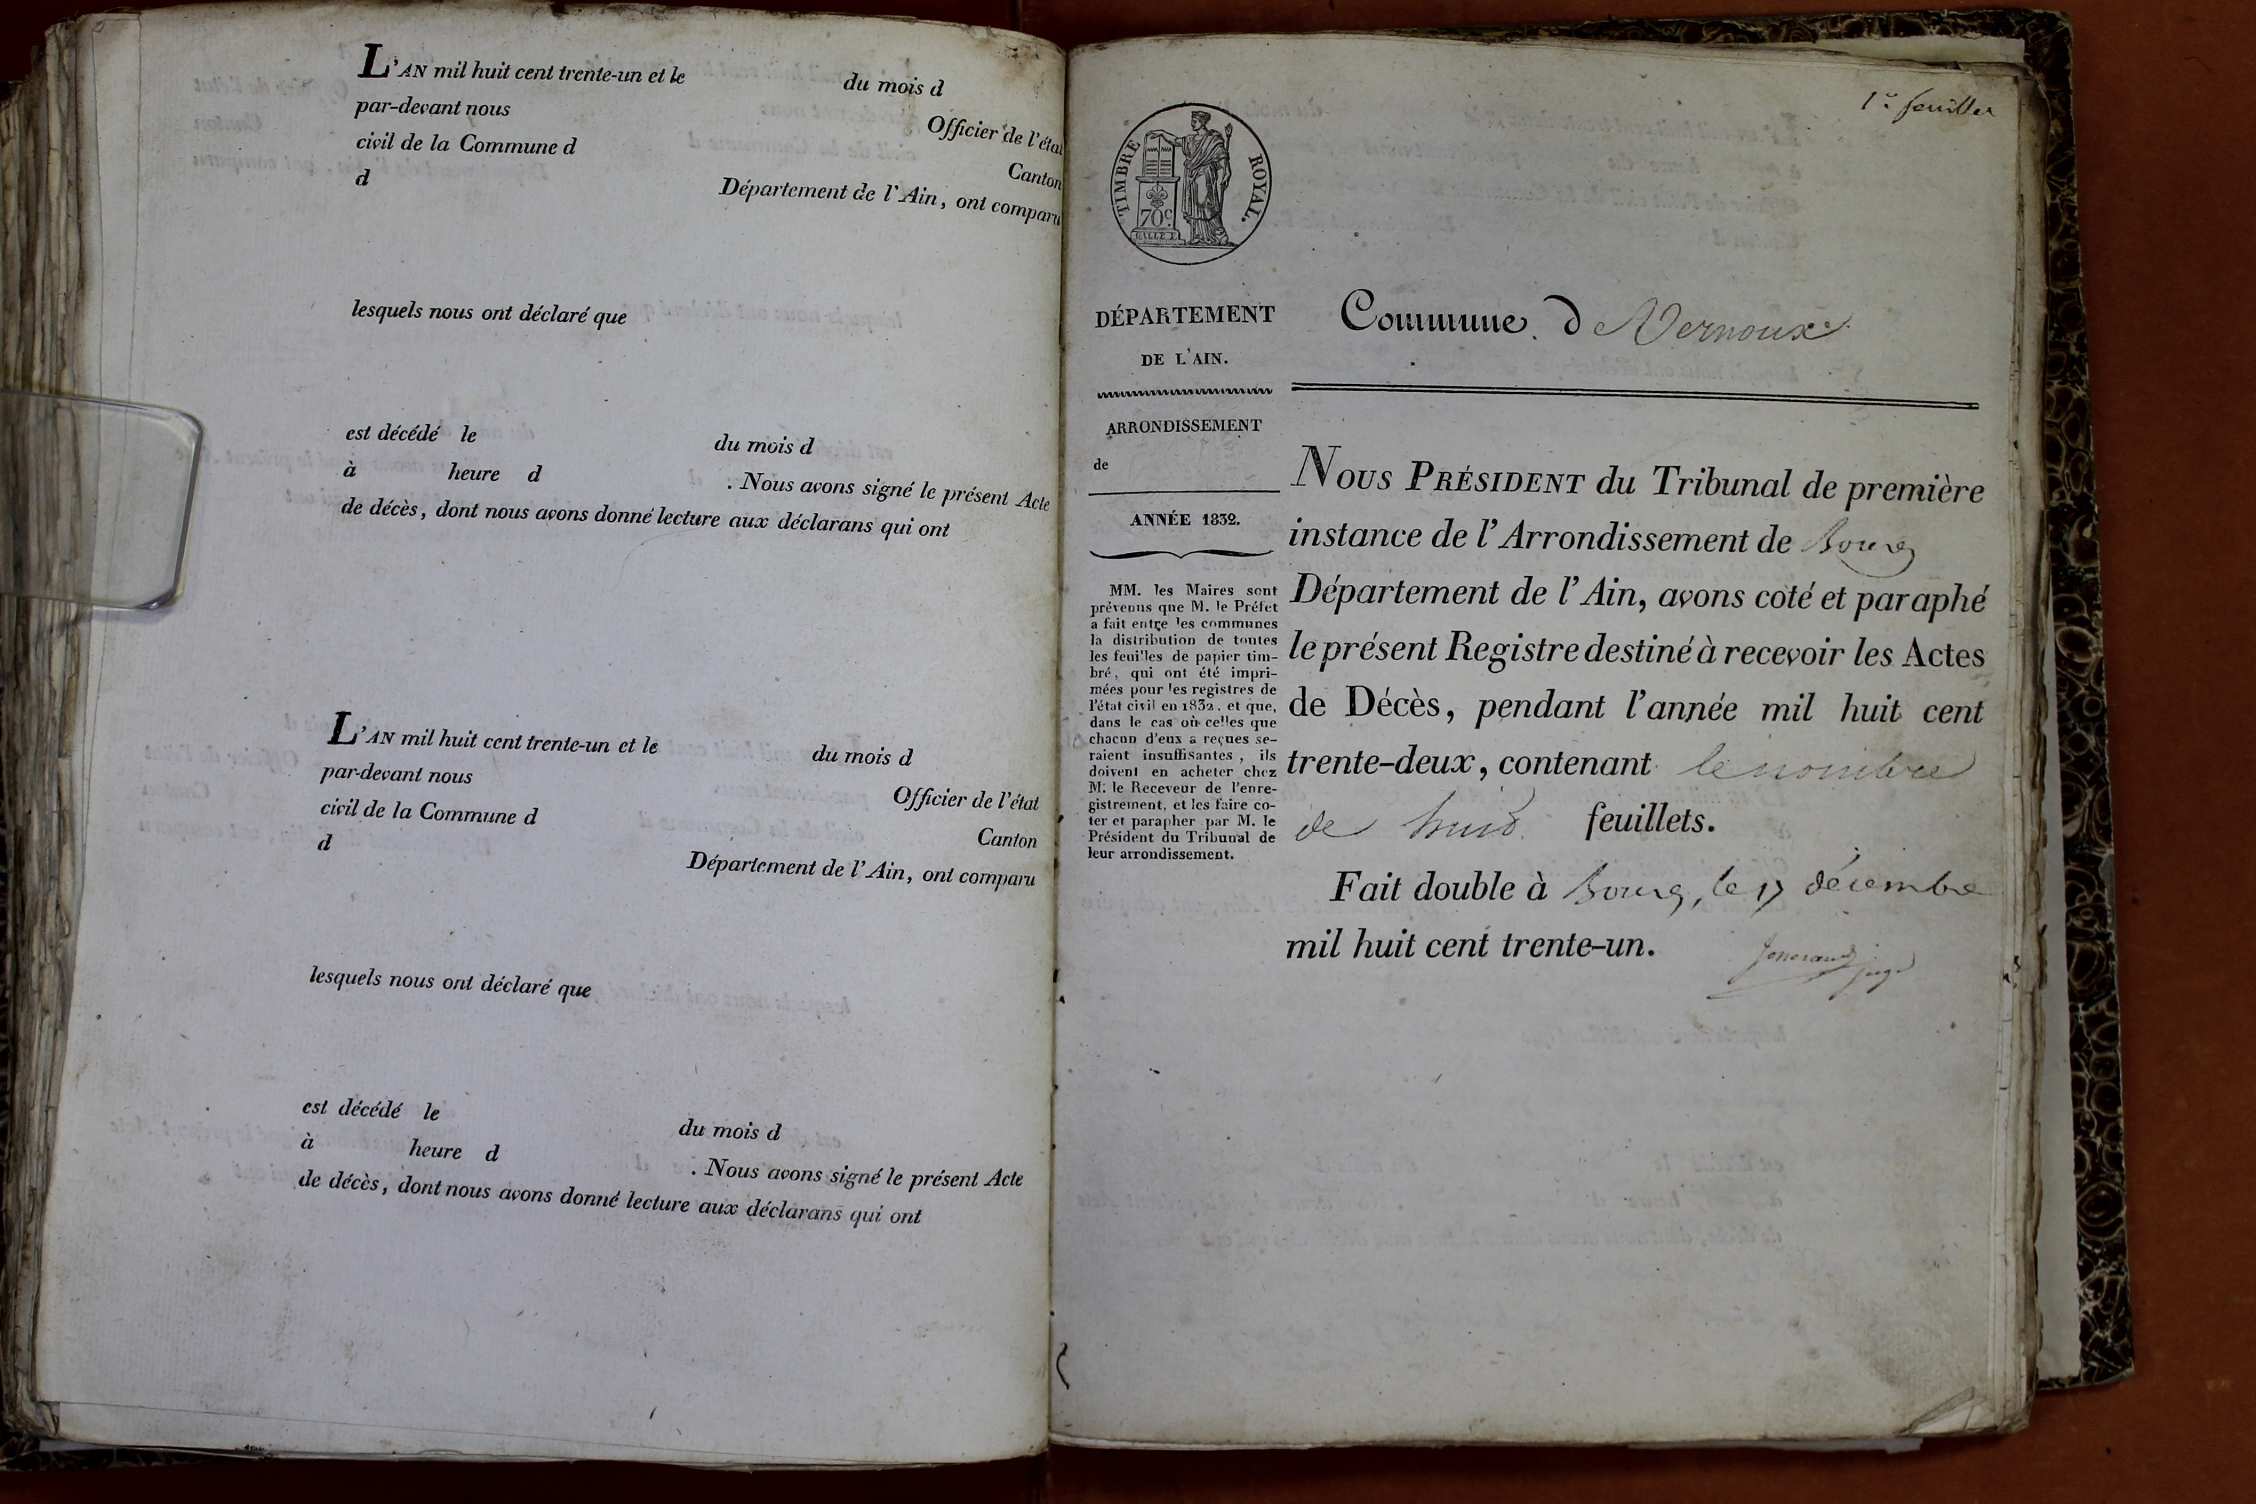 L'AN mil huit cent trente-un et le du mois d
par-devant nous Officier de l'état
civil de la Commune d Canton
d Département de l'Ain, ont comparu
lesquels nous ont déclaré que
est décédé le du mois d
à heure d . Nous avons signé le présent Acte
de décès, dont nous avons donné lecture aux déclarans qui ont
L'AN mil huit cent trente-un et le du mois d
par-devant nous Officier de l'état
civil de la Commune d Canton
d Département de l'Ain, ont comparu
lesquels nous ont déclaré que
est décédé le du mois d
à heure d . Nous avons signé le présent Acte
de décès, dont nous avons donné lecture aux déclarans qui ont
1er feuillet
TIMBRE ROYAL.
70c
DÉPARTEMENT
DE L'AIN.
ARRONDISSEMENT
de
ANNÉE 1832.
MM. les Maires sont
prévenus que M. le Préfet
a fait entre les communes
la distribution de toutes
les feuilles de papier tim-
bré, qui ont été impri-
mées pour les registres de
l'état civil en 1832, et que,
dans le cas où celles que
chacun d'eux a reçues se-
raient insuffisantes, ils
doivent en acheter chez
M. le Receveur de l'enre-
gistrement, et les faire co-
ter et parapher par M. le
Président du Tribunal de
leur arrondissement.
Commune de Vernoux
NOUS PRÉSIDENT du Tribunal de première
instance de l'Arrondissement de Bourg
Département de l'Ain, avons coté et paraphé
le présent Registre destiné à recevoir les Actes
de Décès, pendant l'année mil huit cent
trente-deux, contenant le nombre
de huit feuillets.
Fait double à Bourg, le 17 décembre
mil huit cent trente-un.
juge